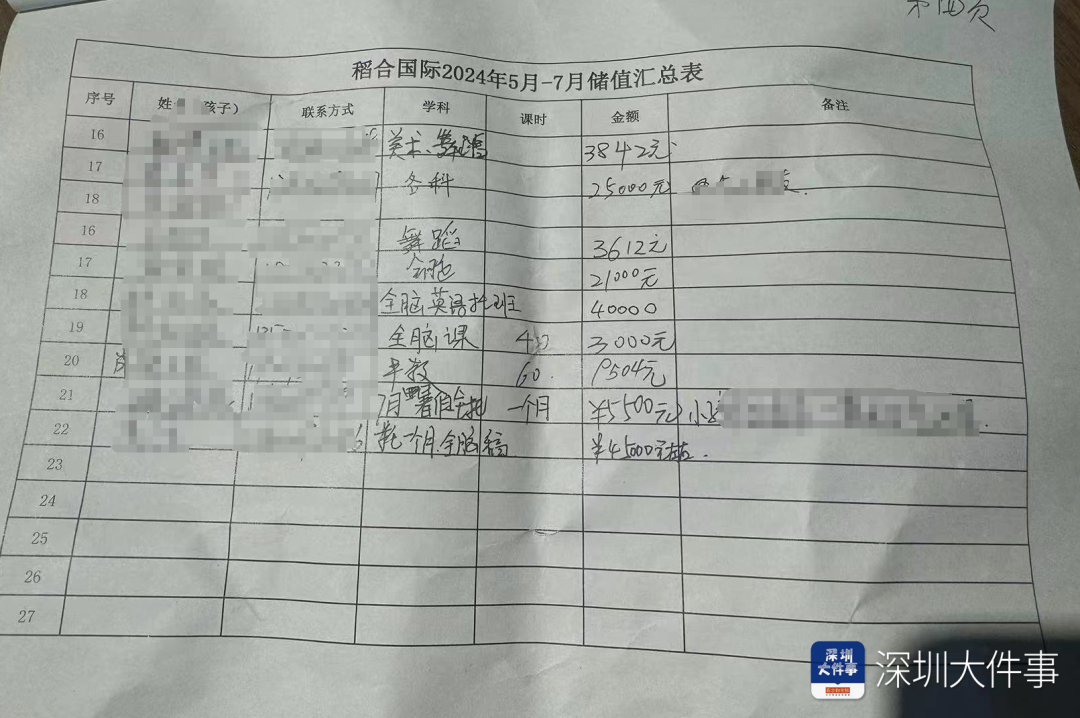 第 页
稻合国际2024年5月-7月储值汇总表
序号 姓 孩子） 联系方式 学科 课时 金额 备注
16 美术、 3842元
17 各科 25000元
18
16 舞蹈 3612元
17 21000元
18 全脑英语托班 40000
19 全脑课 3000元
20 60. 9504元
21 7月暑假全托 一个月 ¥5500元 小
22 一个月.全脑 ¥45000元左右.
23
24
25
26
27
深圳大件事
深圳大件事